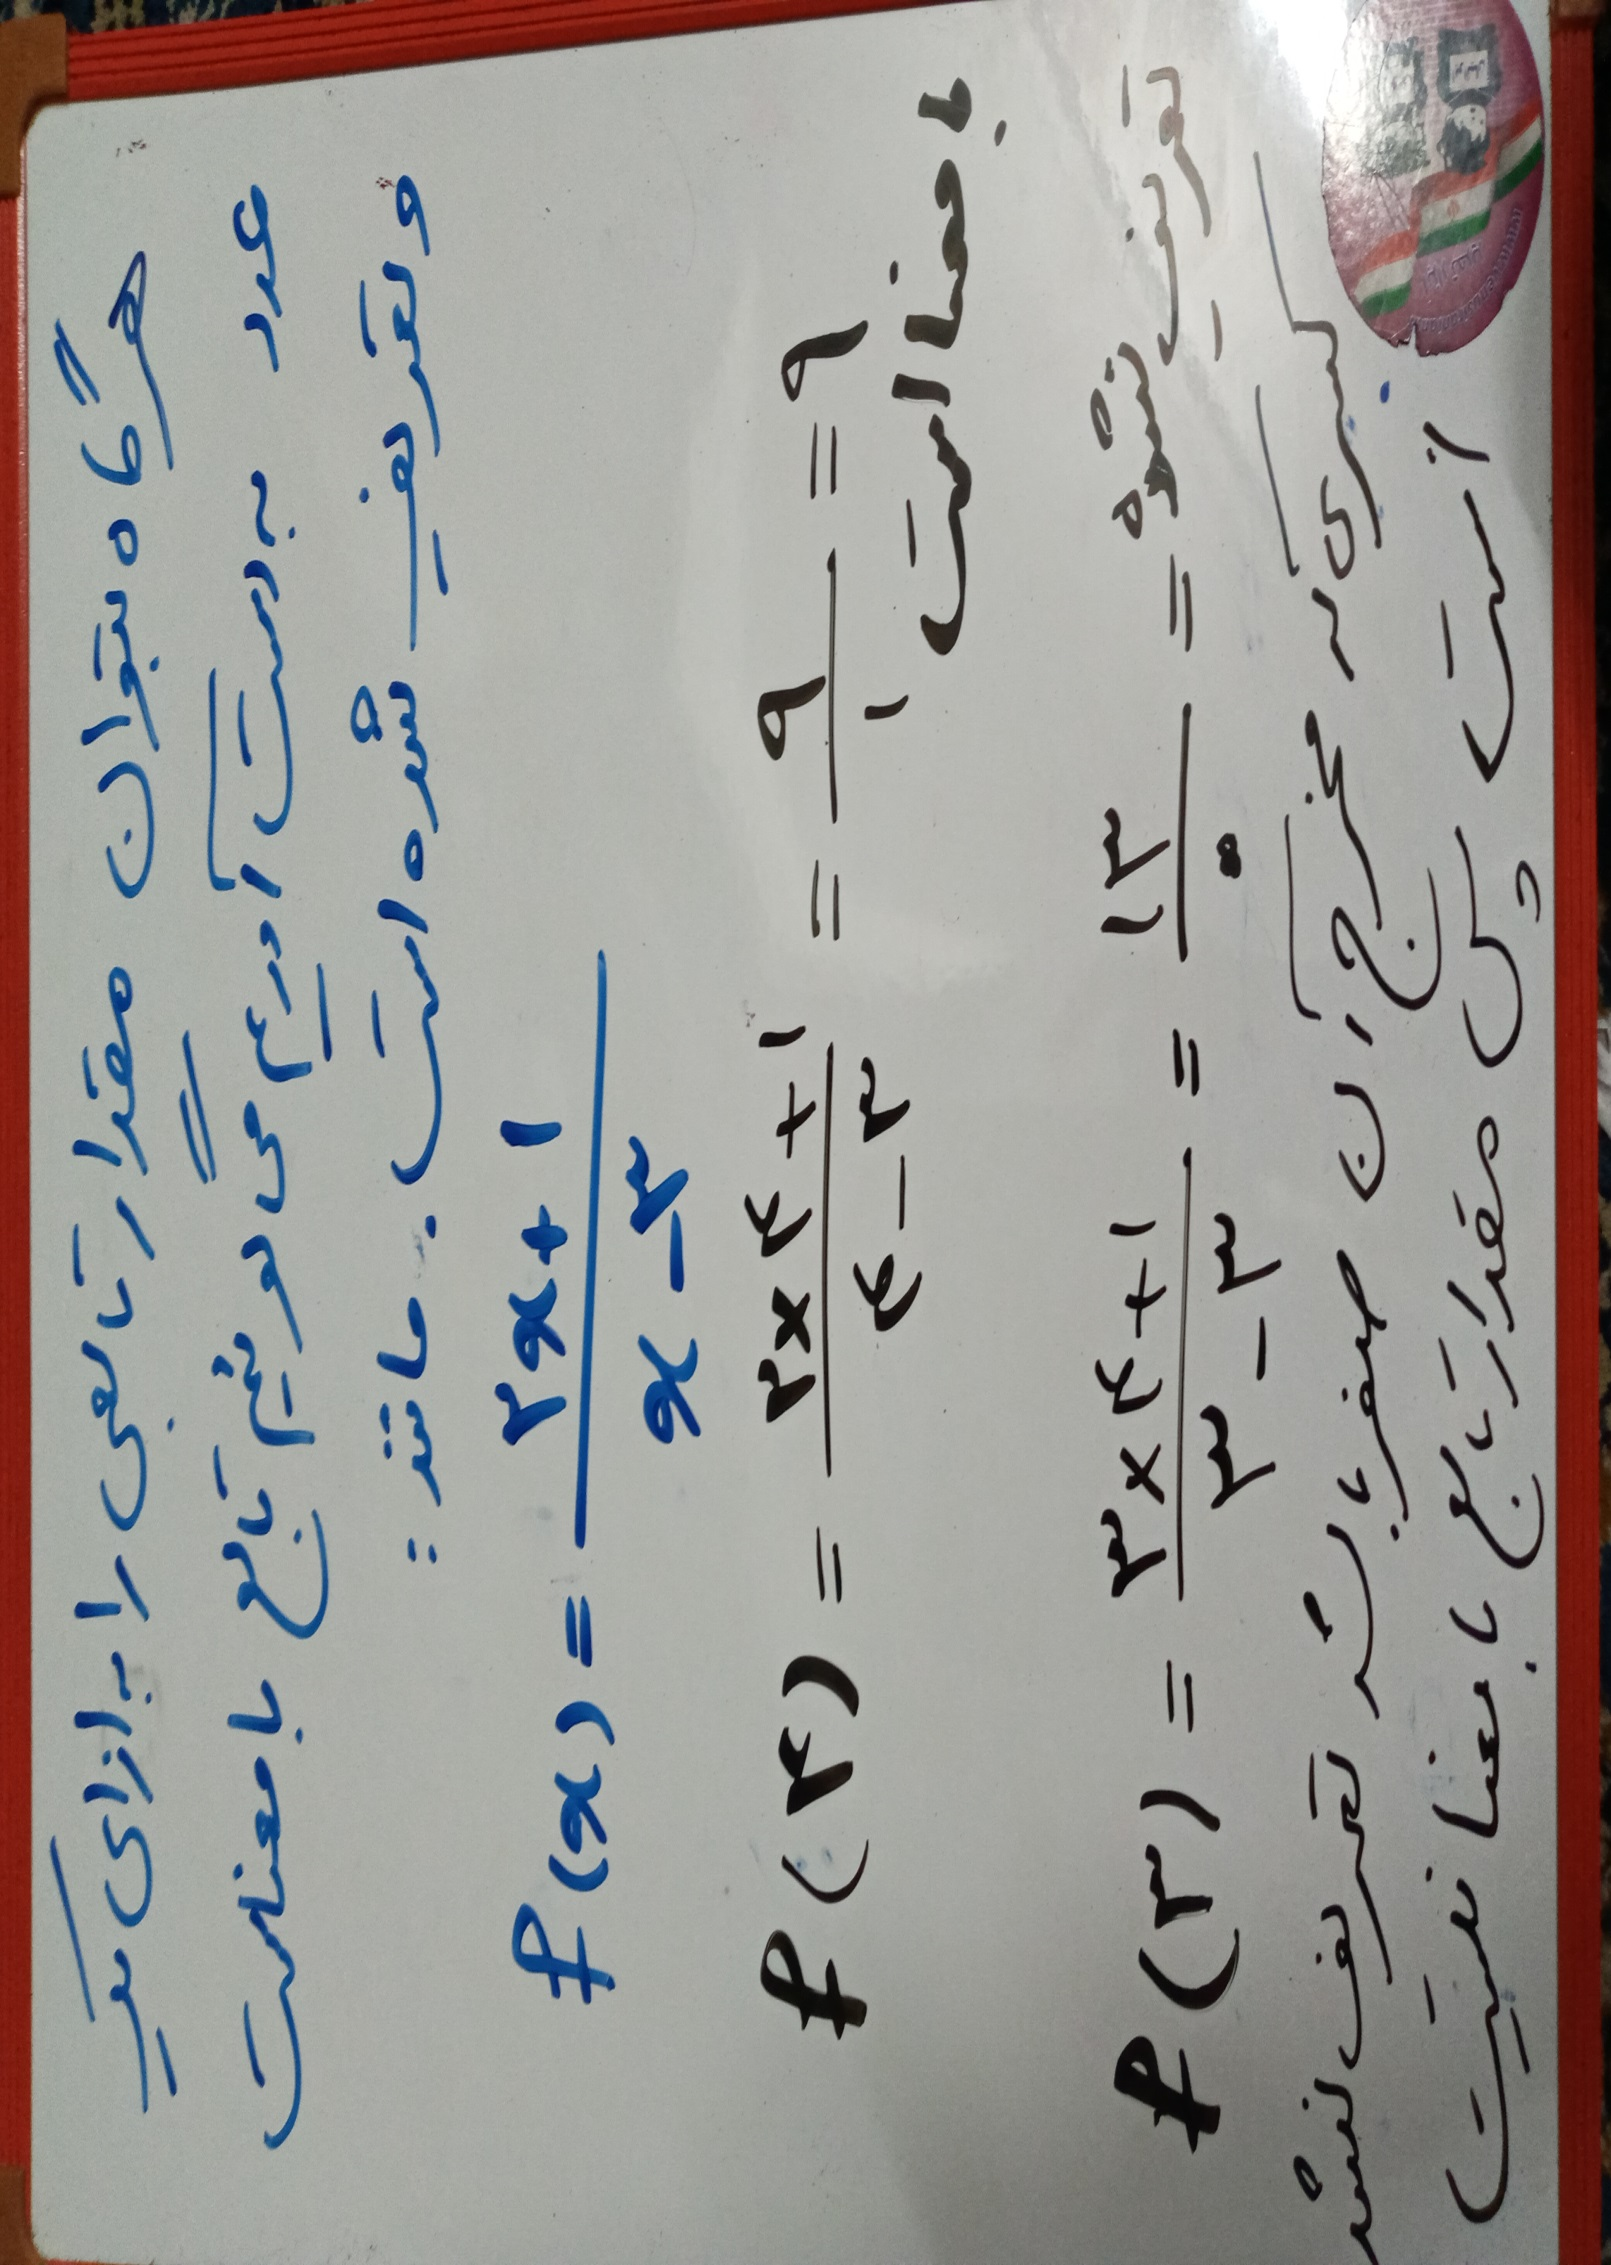 هرگاه بتوان مقدار تابعی را به ازای یک
عدد به دست آوریم می گوئیم تابع با معناست
و تعریف شده است. مانند:
f(x) = ۲x+۱ / x-۳
f(۴) = ۲×۴+۱ / ۴-۳ = ۹/۱ = ۹
با معنا است
f(۳) = ۳×۴+۱ / ۳-۳ = ۱۳/۰ = تعریف نشده
کسری که مخرج آن صفر باشد تعریف نشده
است پس مقدار تابع با معنا نیست